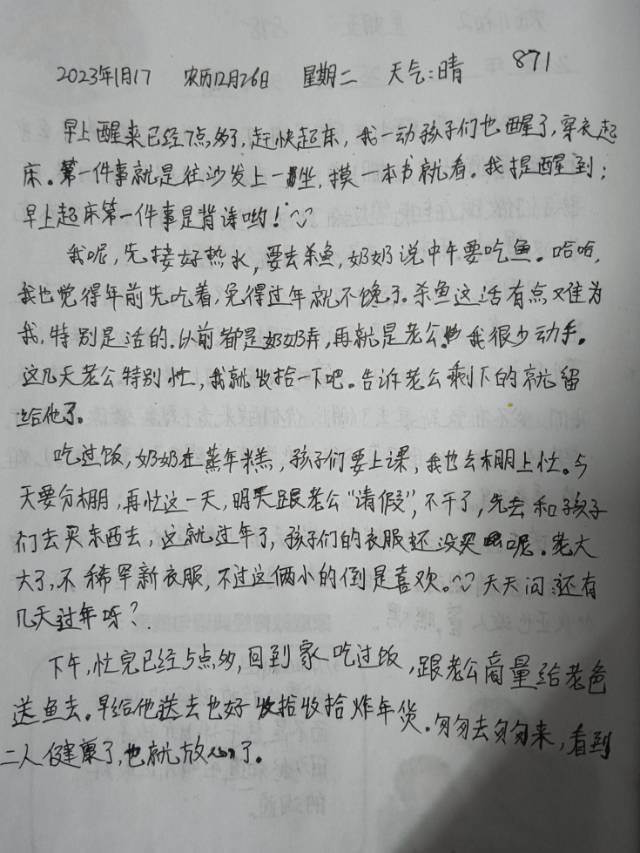 2023年1月17 农历12月26日 星期二 天气:晴 871
早上醒来已经7点多了,赶快起床,我一动孩子们也醒了,穿衣起
床。第一件事就是往沙发上一坐,摸一本书就看。我提醒到:
早上起床第一件事是背诗哟!
我呢,先接好热水,要去杀鱼,奶奶说中午要吃鱼。哈哈,
我也觉得年前先吃着,免得过年就不馋了。杀鱼这活有点难为
我,特别是活的。以前都是奶奶弄,再就是老公。我很少动手。
这几天老公特别忙,我就收拾一下吧。告诉老公剩下的就留
给他了。
吃过饭,奶奶在蒸年糕,孩子们要上课,我也去棚上忙。今
天要分棚,再忙这一天,明天跟老公“请假”,不干了,先去和孩子
们去买东西去,这就过年了,孩子们的衣服还没买呢。老大
大了,不稀罕新衣服,不过这俩小的倒是喜欢。天天问:还有
几天过年呀?
下午,忙完已经5点多,回到家吃过饭,跟老公商量给老爸
送鱼去。早给他送去也好收拾收拾炸年货。匆匆去匆匆来,看到
二人健康了,也就放心了。